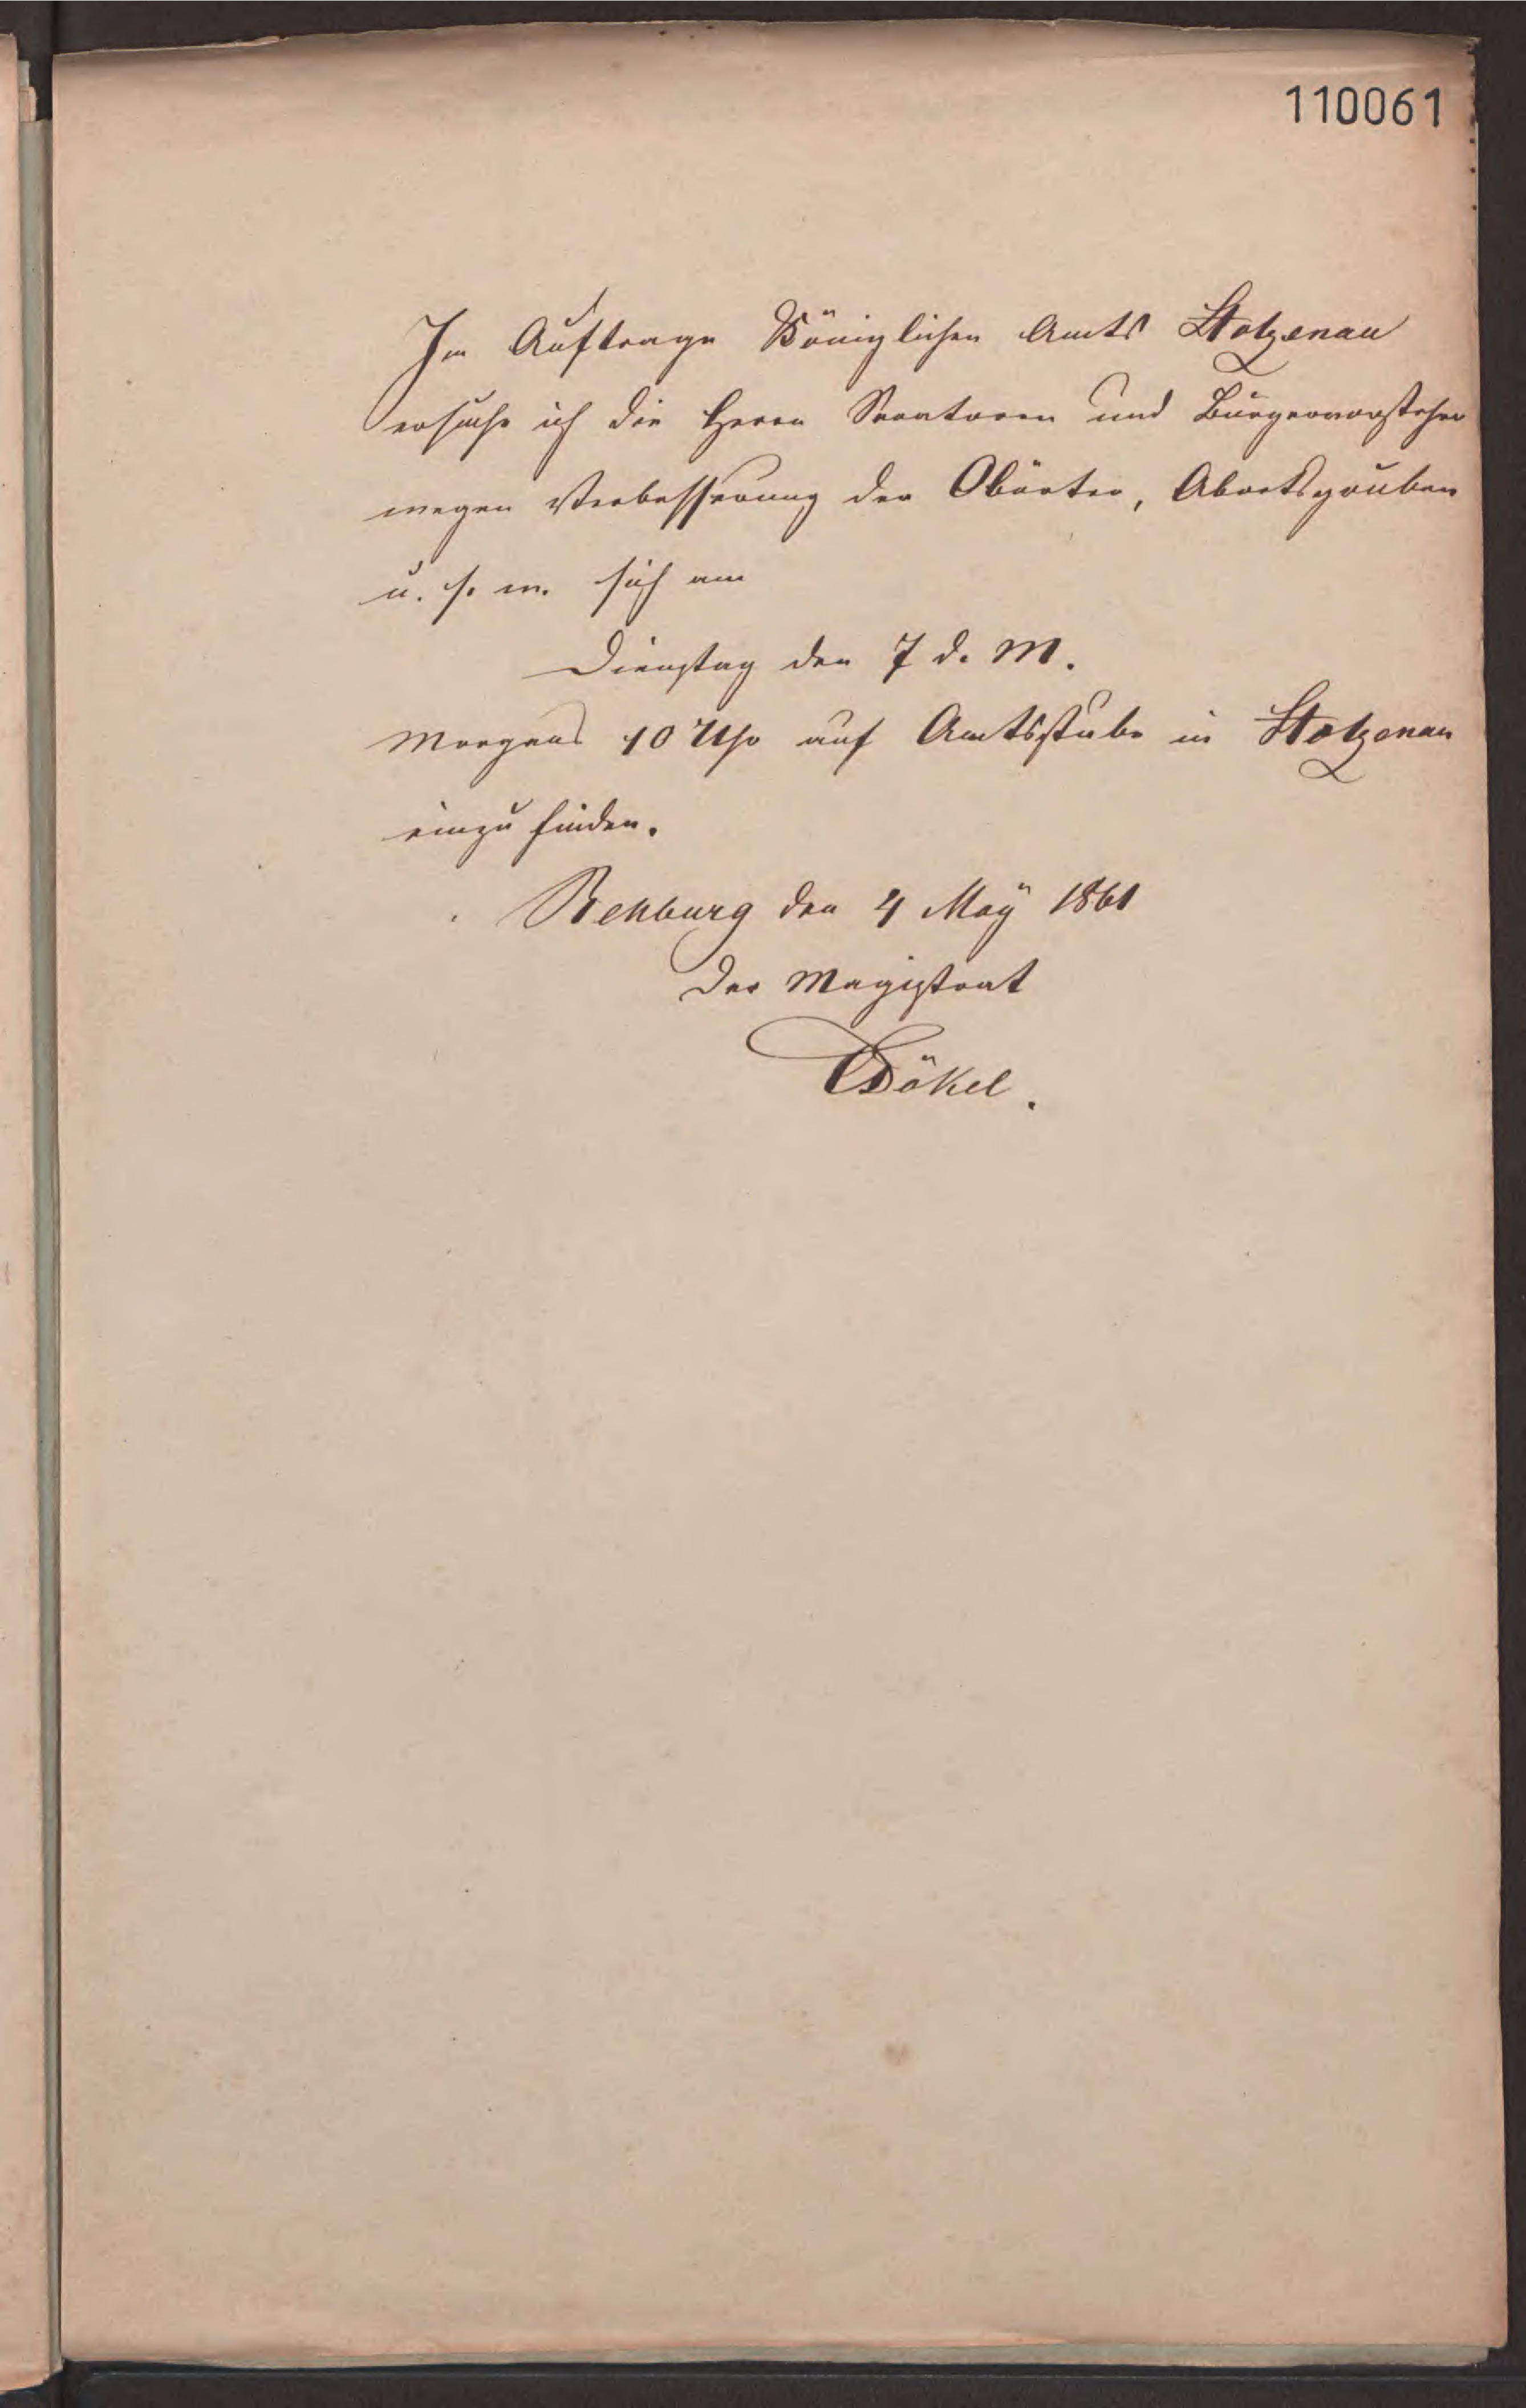 110061
Im Auftrage Königlichen Amts Stolzenau
ersuche ich die Herrn Senatoren und Bürgervorsteher
wegen Verbesserung der Abörter, Abortsgruben
u. s. w. sich am
Dienstag den 7 d. M.
Morgens 10 Uhr auf Amtsstube in Stolzenau
einzufinden.
Rehburg den 4 Maÿ 1861
Der Magistrat
Dökel.